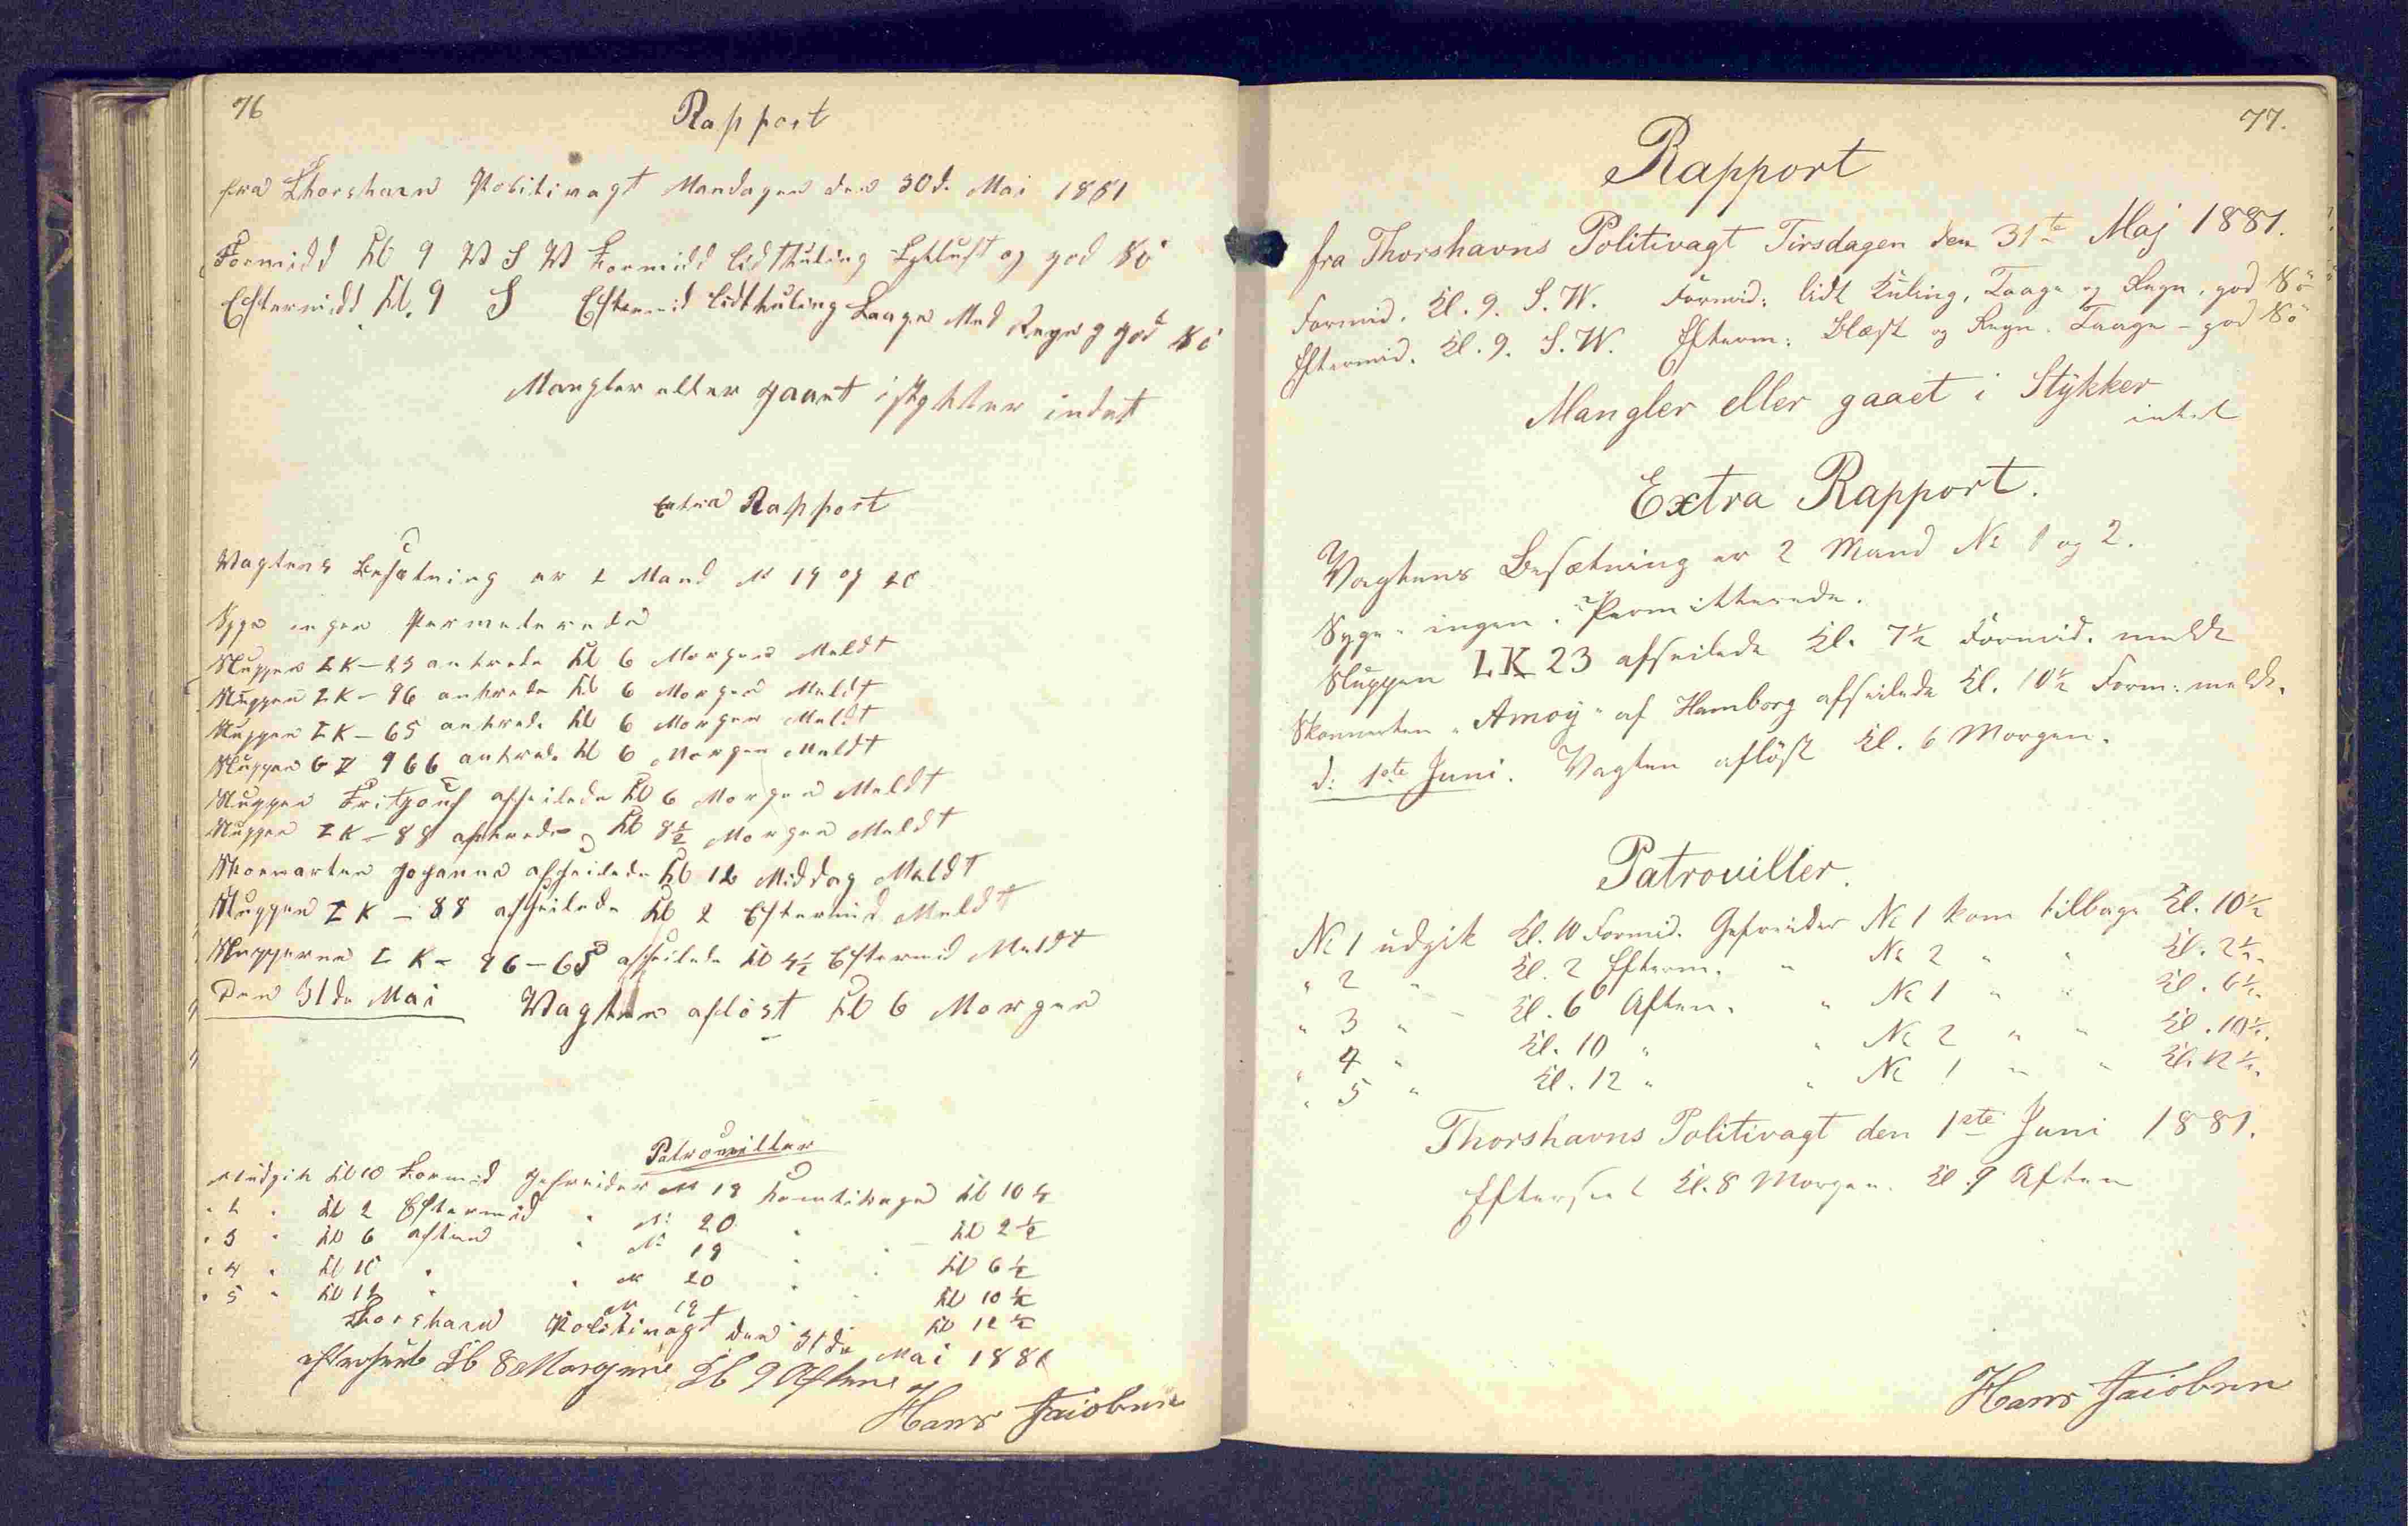 76
Rapport
fra Thorshavn Politivagt Mandagen den 30d. Mai 1881
Formidd Kl 9 W S W Formidd lidt Kuling Tykluft og god Sö
Eftermidd Kl. 9 S Eftermid lidt kuling Taage Med Regn g god Sö
Mangler eller gaaet istykker indet
Extra Rapport
Wagtens Besætning er 2 Mand N 19 og 20
Syge ingen Permeterede
Sluppen LK-23 ankrede Kl 6 Morgen Meldt
Sluppen LK-96 ankrede Kl 6 Morgen Meldt
Sluppen LK-65 ankrede Kl 6 Morgen Meldt
Sluppen GY 966 ankrede Kl 6 Morgen Meldt
Sluppen afseilede Kl 6 Morgen Meldt
Sluppen LK-88 Kl 8½ Morgen Meldt
Skonnarten Johanna afseilede Kl 12 Middag Meldt
Sluppen LK-88 afseilede Kl 2 Eftermid Meldt
Slupperne LK-96-65 afseilede Kl 4½ Eftermid Meldt
Den 31de Mai Wagten aflöst Kl 6 Morgen
Patrouiller
N 1 udgik Kl 10 Formid Gefreider N 19 kom tilbage Kl 10½
" 2 " Kl 2 Eftermid " N: 20 " Kl 2½
" 3 " Kl 6 aften " N: 19 " " Kl 6½
" 4 " Kl 10 " " N 20 " " Kl 10½
" 5 " Kl 12 " N 19 " Kl 12½
Thorshavn Politivagt den 31de Mai 1881
Kl 8 Morgen Kl 9 Aften
Hans Jacobsen
77.
Rapport
fra Thorshavns Politivagt Tirsdagen den 31te Maj 1881.
Formid. Kl. 9. S. W. Formid: lidt Kuling, Taage og Regn, god Sö
Eftermid. Kl. 9. S. W. Efterm: Blæst og Regn. Taage - god Sö
Mangler eller gaaet i Stykker
intet
Extra Rapport.
Vagtens Besætning er 2 Mand No 1 og 2.
Syge " ingen. Permitterede.
Sluppen LK 23 afseilede Kl. 7½ Formid. meldt
Skonnerten "Amoy" af Hamborg afseilede Kl. 10½ Form: meldt.
d: 1ste Juni. Vagten aflöst Kl. 6 Morgen.
Patrouiller.
No 1 udgik Kl. 10 Formid. Gefreider No 1 kom tilbage Kl. 10½
" 2 " Kl. 2 Efterm. " No 2 " " Kl. 2½.
" 3 " - Kl. 6 Aften. " No 1 " " Kl. 6½.
" 4 " Kl. 10 " " No 2 " " Kl. 10½.
" 5 " Kl. 12 " " No 1 " " Kl. 12½.
Thorshavns Politivagt den 1ste Juni 1881.
Efterseet Kl. 8 Morgen. Kl. 9 Aften
Hans Jacobsen